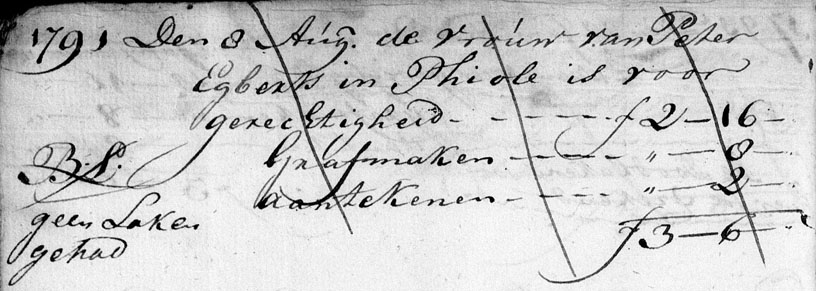 1791 Den 8 Aúg. de vroúw van Peter
Egberts in Phiole is voor
gerechtigheid - - - - - - f 2 - 16 -
B:S: Grafmaken - - - - " - 8 -
aantekenen - - - - " - 2 -
geen Laken f 3 - 6 -
gehad